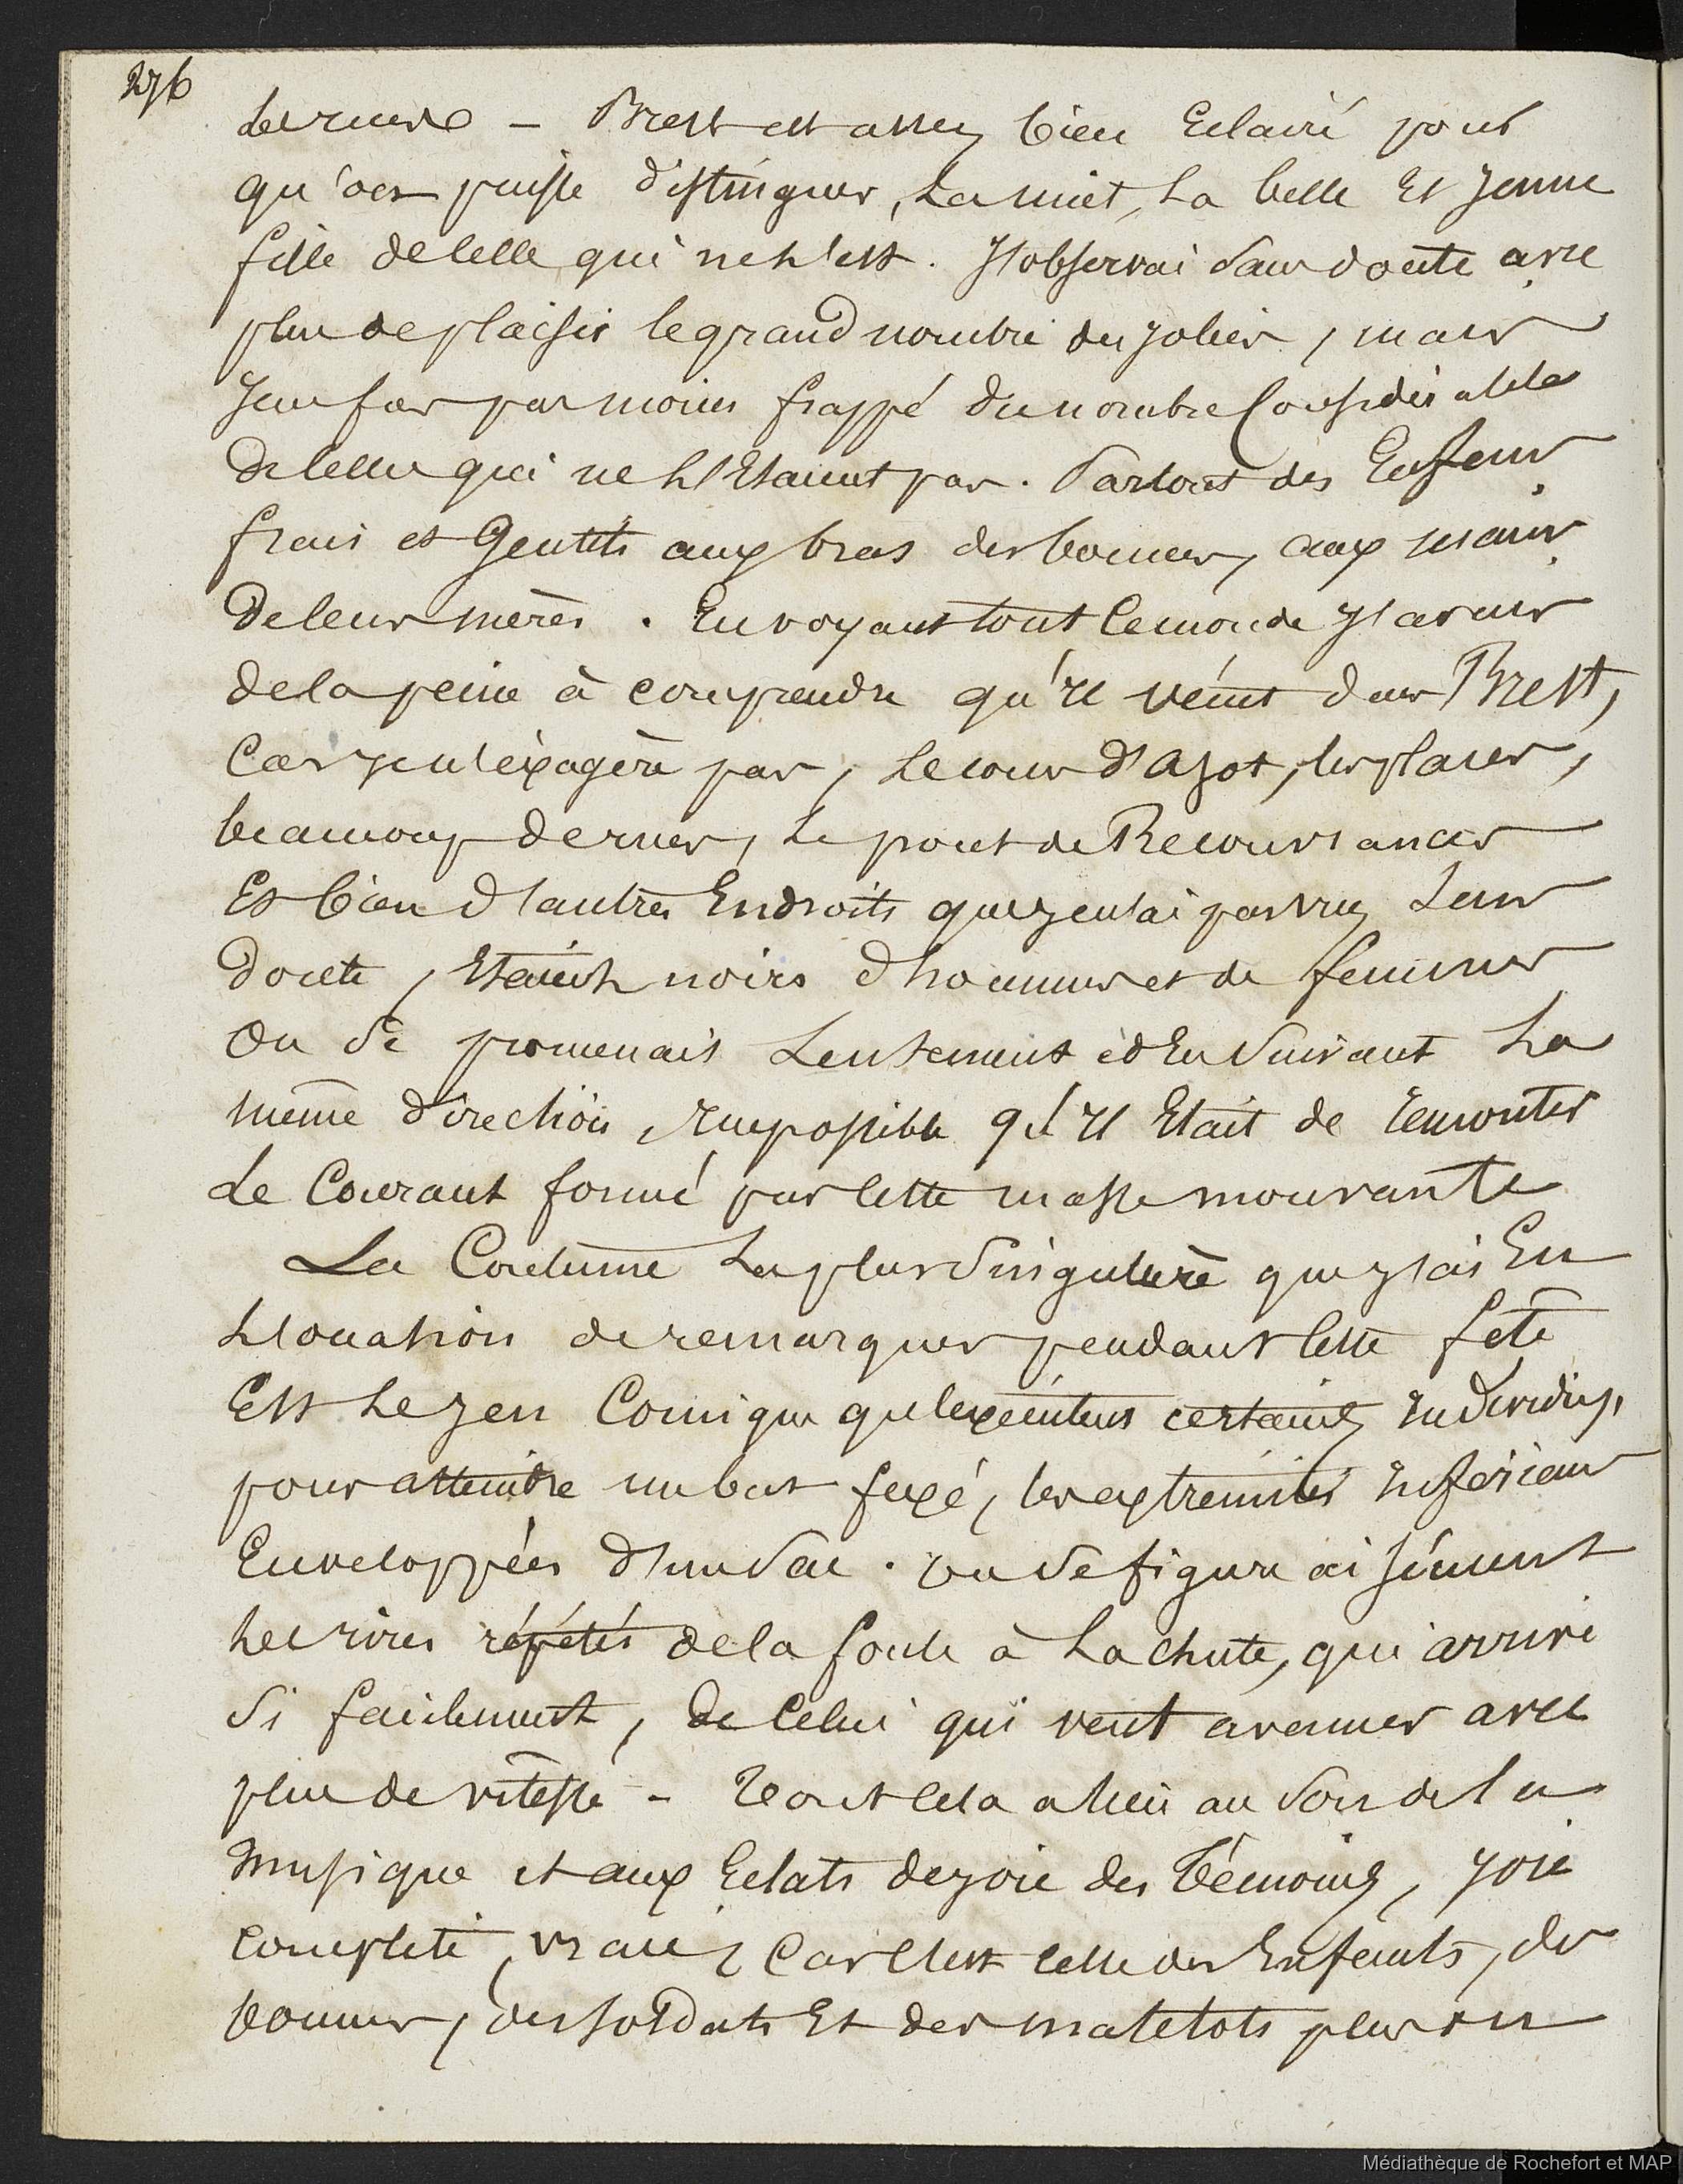 276
les rues – Brest est assez bien Eclairé pour
qu'on puisse distinguer, la nuit, la belle Et jeune
fille de celle qui ne l'est. J'observai sans doute avec
plus de plaisir le grand nombre des jolies, mais
je ne fus pas moins frappé du nombre Considérable
de celles qui ne l'Etaient pas. Partout des Enfans
frais et Gentils aux bras des bonnes, aux mains
de leurs mères. En voyant tout ce monde j'avais
de la peine à comprendre qu'il vécut dans Brest,
Car je n'éxagère pas, le cours d'ajot, les places,
beaucoup de rues, le pont de Recouvrances
Et bien d'autres Endroits que je n'ai pas vus sans
doute, Etaient noirs d'hommes et de femmes
On se promenait Lentement et En suivant la
même direction, impossible qu'il Etait de remonter
Le Courant formé par cette masse mouvante
La Coutume la plus singulière que j'ai Eu
l'ocasion de remarquer pendant cette fête
Est le jeu Comique qu'exécutent certains individus,
pour atteindre un but fixé, les extremités inférieurs
Enveloppées d'un sac. On se figure aisément
les rires répétés de la foule à la chute, qui arrive
si facilement, de Celui qui veut avancer avec
plus de vitesse – Tout cela a lieu au son de la
musique et aux Eclats de joie des témoins, joie
complete, vraie, Car C'est celle des Enfants, des
bonnes, des soldats Et des matelots plus ou
Médiathèque de Rochefort et MAP